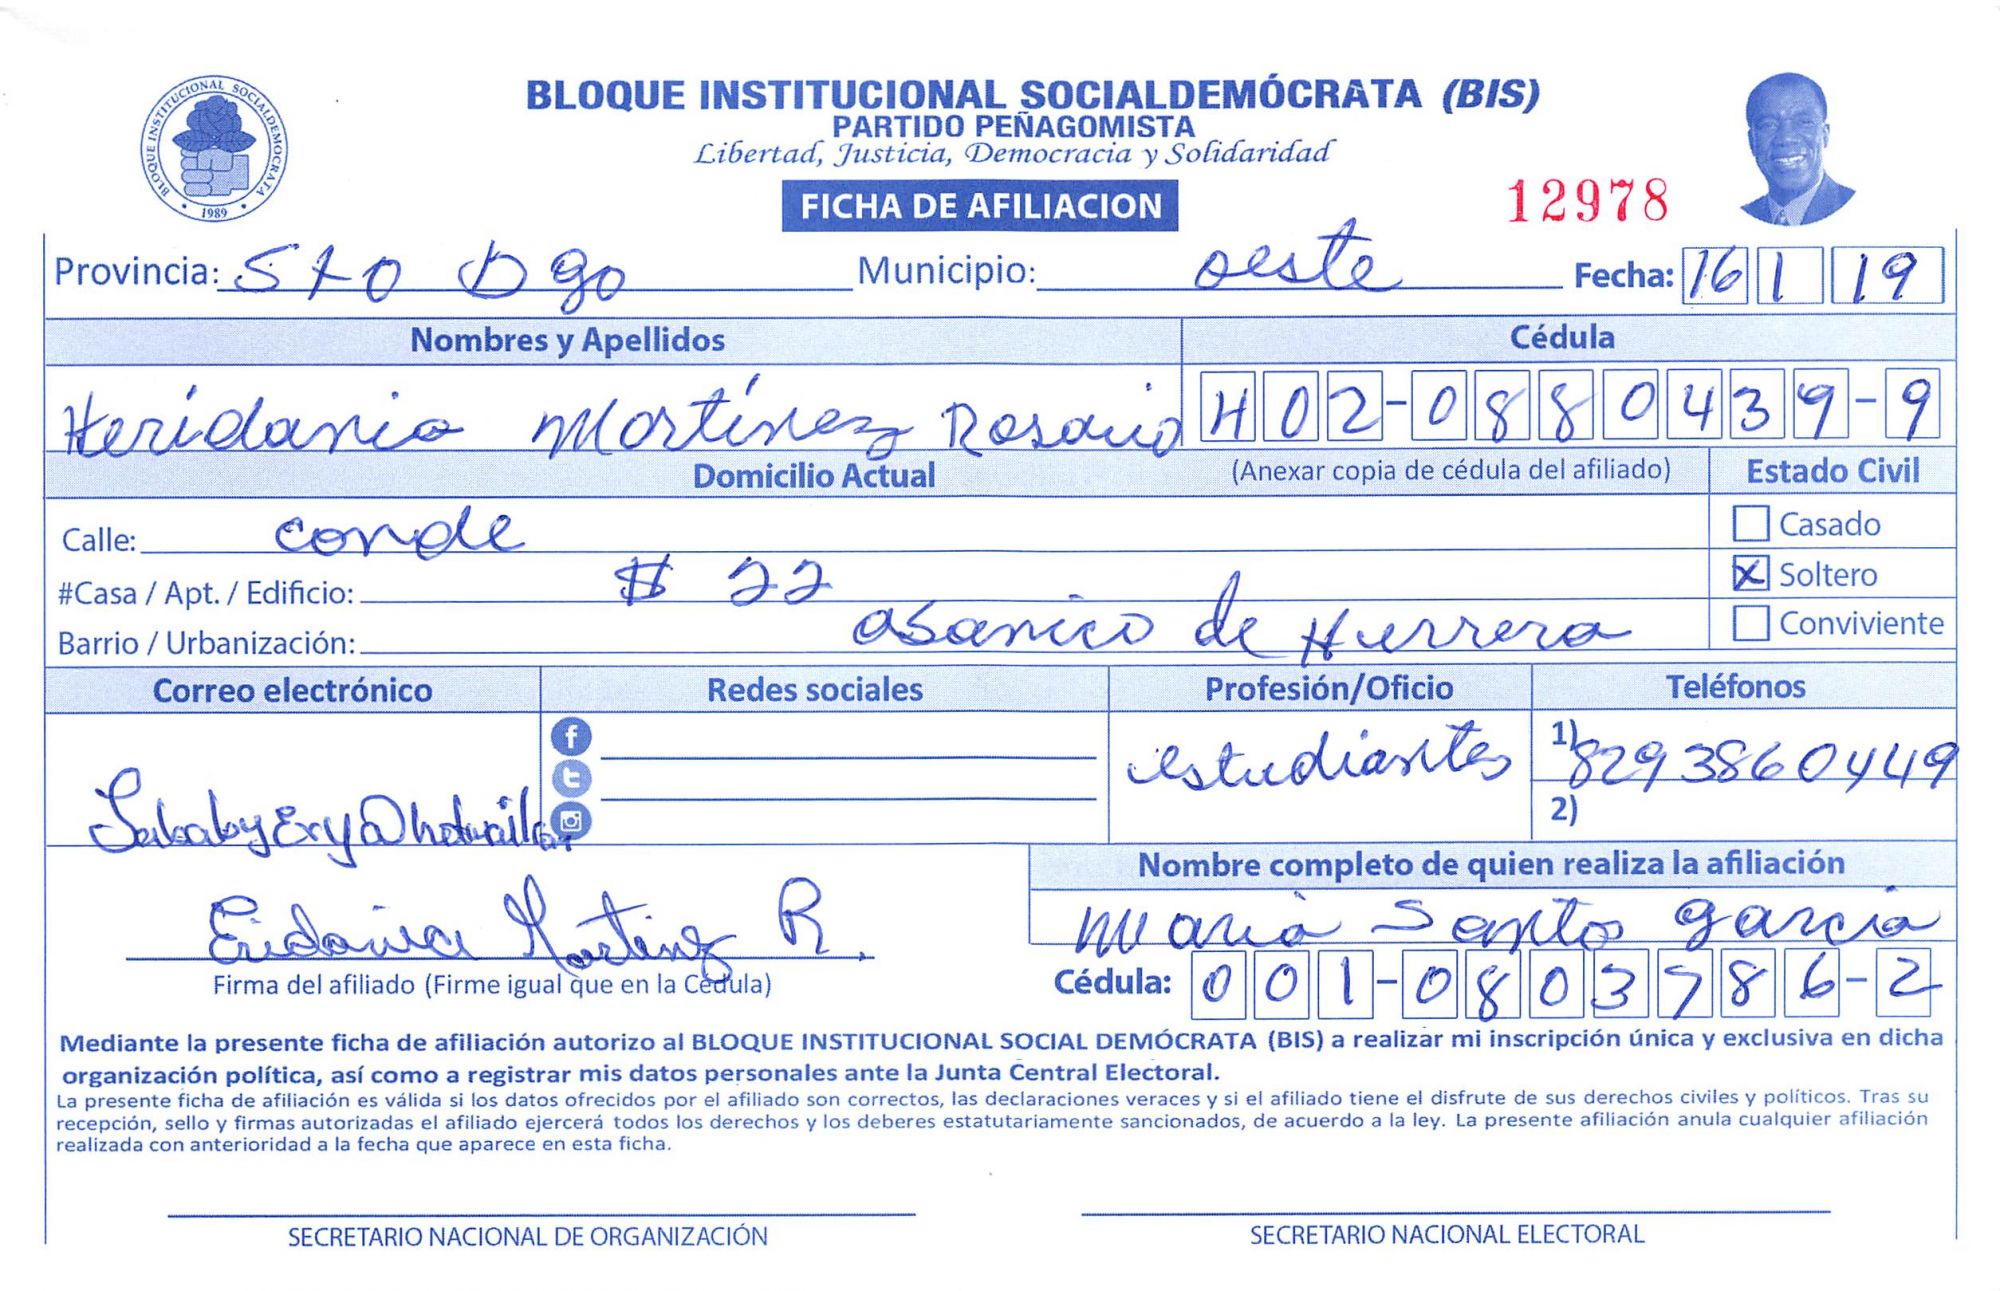 BLOQUE INSTITUCIONAL SOCIALDEMÓCRATA (BIS)
PARTIDO PEÑAGOMISTA
Libertad, Justicia, Democracia y Solidaridad
BLOQUE INSTITUCIONAL SOCIALDEMOCRATA
1989
FICHA DE AFILIACION
12978
Provincia: Sto Dgo Municipio: oeste Fecha: 16 1 19
Nombres y Apellidos Cédula
Heridania Martínez Rosario 402-0880439-9
Domicilio Actual (Anexar copia de cédula del afiliado) Estado Civil
Calle: conde
Casado
#Casa / Apt. / Edificio: # 22
X Soltero
Barrio / Urbanización: de Herrera
Conviviente
Correo electrónico Redes sociales Profesión/Oficio Teléfonos
estudiantes 1) 8293860449
2)
Nombre completo de quien realiza la afiliación
Eridania Martinez R.
Maria Santo garcia
Firma del afiliado (Firme igual que en la Cédula)
Cédula: 001-0803786-2
Mediante la presente ficha de afiliación autorizo al BLOQUE INSTITUCIONAL SOCIAL DEMÓCRATA (BIS) a realizar mi inscripción única y exclusiva en dicha
organización política, así como a registrar mis datos personales ante la Junta Central Electoral.
La presente ficha de afiliación es válida si los datos ofrecidos por el afiliado son correctos, las declaraciones veraces y si el afiliado tiene el disfrute de sus derechos civiles y políticos. Tras su
recepción, sello y firmas autorizadas el afiliado ejercerá todos los derechos y los deberes estatutariamente sancionados, de acuerdo a la ley. La presente afiliación anula cualquier afiliación
realizada con anterioridad a la fecha que aparece en esta ficha.
SECRETARIO NACIONAL DE ORGANIZACIÓN SECRETARIO NACIONAL ELECTORAL